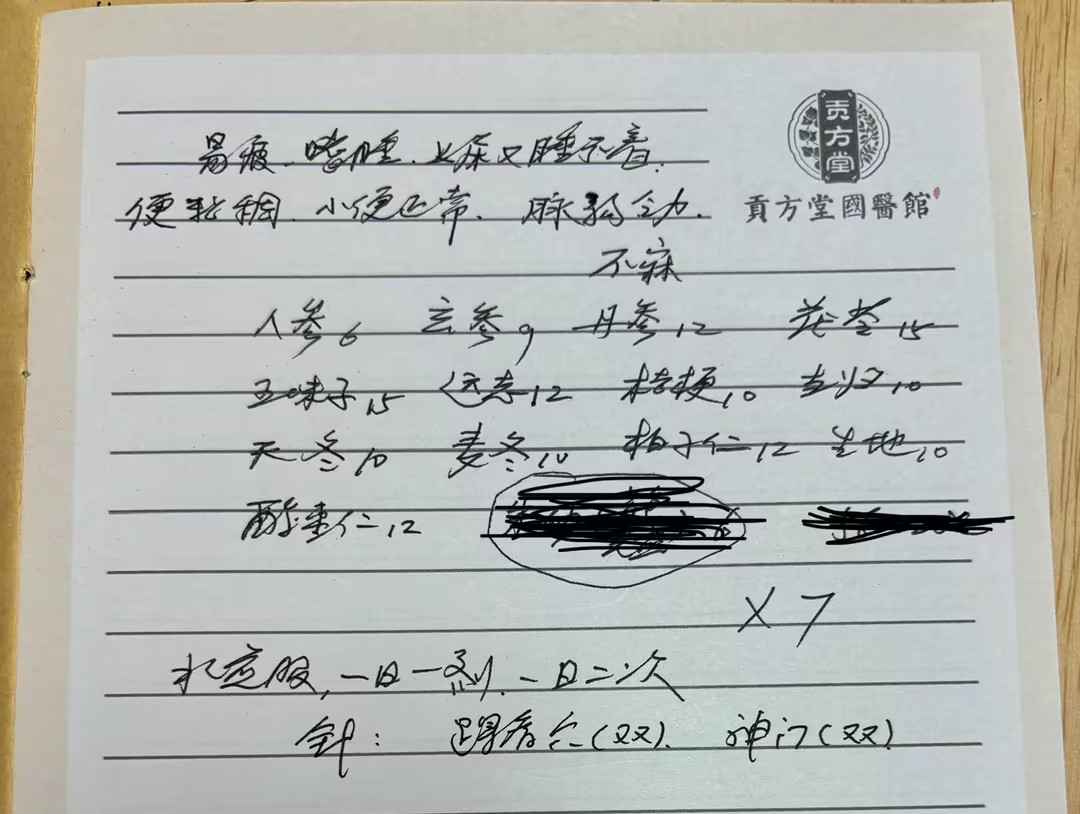 貢方堂
貢方堂國醫館
易疲、嗜睡、上床又睡不着、
便粘稠、小便正常、脉弱
不寐
人参6 玄参9 丹参12 茯苓15
五味子15 远志12 桔梗10 当归10
天冬10 麦冬10 柏子仁12 生地10
酸枣仁12
×7
水煎服,一日一剂、一日二次
针: (双)、神门(双)